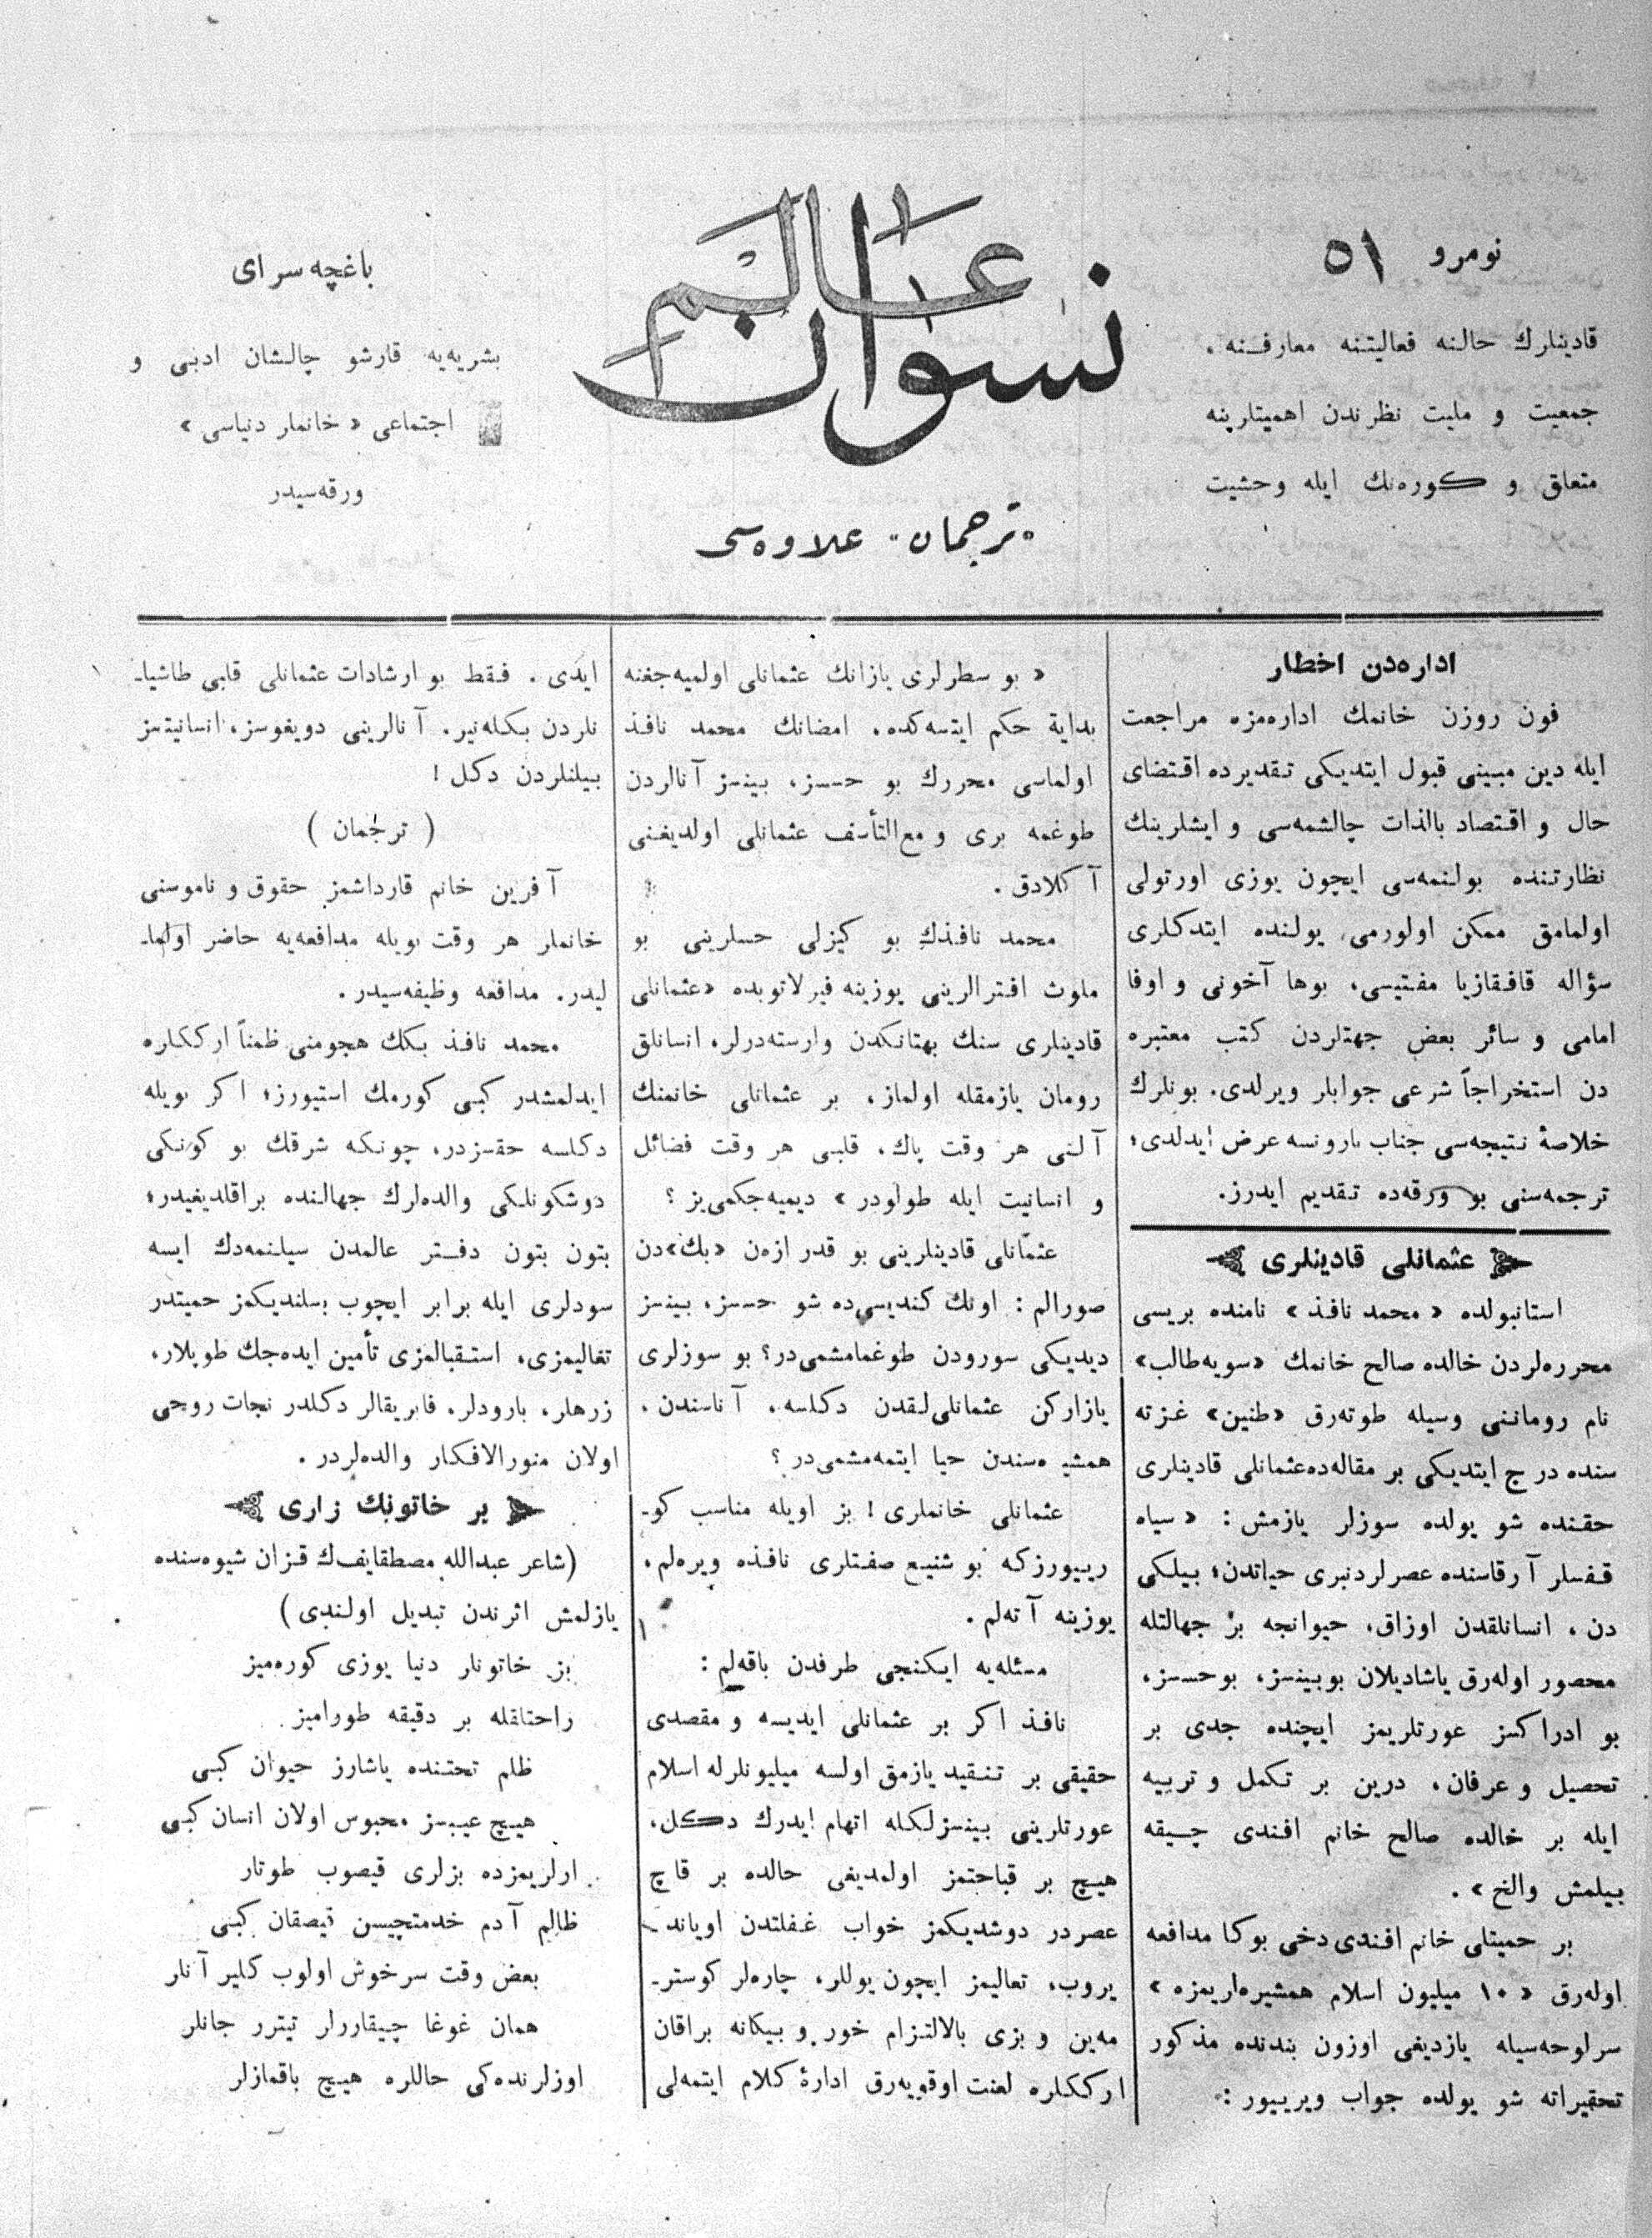 نومرو ٥١
قادینلرك حالنه فعالیتنه معارفنه ،
جمعیت و ملیت نظرندن اهمیتلرینه
متعلق و کوره‌نك ایله وحشیت
عالم نسوان
«ترجمان» علاوه‌سی
باغچه سرای
بشریه‌یه قارشو چالشان ادبی و
اجتماعی « خانملر دنیاسی »
ورقه‌سیدر
اداره‌دن اخطار
فون روزن خانمك اداره‌مزه مراجعت
ایله دین مبینی قبول ایتدیکی تقدیرده اقتضای
حال و اقتصاد بالذات چالشمه‌سی و ایشلرینك
نظارتنده بولنمه‌سی ایچون یوزی اورتولی
اولمامق ممکن اولورمی، یولنده ایتدکلری
سؤاله قافقازیا مفتیسی، بوها آخونی و اوفا
امامی و سائر بعض جهتلردن کتب معتبره
دن استخراجاً شرعی جوابلر ویرلدی. بونلرك
خلاصهٔ نتیجه‌سی جناب بارونسه عرض ایدلدی؛
ترجمه‌سنی بو ورقه‌ده تقدیم ایدرز.
عثمانلی قادینلری
استانبولده « محمد نافذ » نامنده بریسی
محرره‌لردن خالده صالح خانمك «سویه طالب»
نام رومانی وسیله طوته‌رق «طنین» غزته
سنده درج ایتدیکی بر مقاله‌ده عثمانلی قادینلری
حقنده شو یولده سوزلر یازمش : « سیاه
قفسلر آرقاسنده عصرلردنبری حیاتدن، بیلکی
دن ، انسانلقدن اوزاق، حیوانجه بر جهالتله
محصور اوله‌رق یاشادیلان بو بینسز، بو حسسز،
بو ادراکسز عورتلریمز ایچنده جدی بر
تحصیل و عرفان، درین بر تکمل و تربیه
ایله بر خالده صالح خانم افندی چیقه
بیلمش والخ » .
بر حمیتلی خانم افندی دخی بوکا مدافعه
اوله‌رق « ١٠ میلیون اسلام همشیره‌لریمزه »
سرلوحه‌سیله یازدیغی اوزون بندنده مذکور
تحقیراته شو یولده جواب ویرییور :
« بو سطرلری یازانك عثمانلی اولمیه‌جغنه
بدایة حکم ایتسه‌کده، امضانك محمد نافذ
اولماسی محررك بو حسسز، بینسز آنالردن
طوغمه بری و مع التأسف عثمانلی اولدیغنی
آکلادق .
محمد نافذك بو کیزلی حسلرینی بو
ملوث افترالرینی یوزینه فیرلاتوبده «عثمانلی
قادینلری سنك بهتانکدن وارسته‌درلر، انسانلق
رومان یازمقله اولماز، بر عثمانلی خانمنك
آلنی هر وقت پاك، قلبی هر وقت فضائل
و انسانیت ایله طولودر » دیمیه‌جکمی‌یز ؟
عثمانلی قادینلرینی بو قدر ازه‌ن «بك»دن
صورالم : اونك کندیسی‌ده شو حسسز، بینسز
دیدیکی سورودن طوغمامشمی‌در؟ بو سوزلری
یازارکن عثمانلی‌لقدن دکلسه، آناسندن،
همشیره‌سندن حیا ایتمه‌مشمی‌در ؟
عثمانلی خانملری! بز اویله مناسب کو-
رییورزکه بو شنیع صفتلری نافذه ویره‌لم،
یوزینه آته‌لم .
مسئله‌یه ایکنجی طرفدن باقه‌لم :
نافذ اکر بر عثمانلی ایدیسه و مقصدی
حقیقی بر تنقید یازمق اولسه میلیونلرله اسلام
عورتلرینی بینسزلکله اتهام ایدرك دکل،
هیچ بر قباحتمز اولمدیغی حالده بر قاچ
عصردر دوشدیکمز خواب غفلتدن اویاند-
یروب، تعالیمز ایچون یوللر، چاره‌لر کوستر-
مه‌ین و بزی بالالتزام خور و بیکانه براقان
ارککلره لعنت اوقویه‌رق ادارهٔ کلام ایتمه‌لی
ایدی . فقط بو ارشادات عثمانلی قلبی طاشیا-
نلردن بکله‌نیر. آنالرینی دویغوسز، انسانیتسز
بیلنلردن دکل !
( ترجمان )
آفرین خانم قارداشمز حقوق و ناموسنی
خانملر هر وقت بویله مدافعه‌یه حاضر اولما-
لیدر. مدافعه وظیفه‌سیدر .
محمد نافذ بکك هجومنی ظمناً ارککلره
ایدلمشدر کبی کورمك استیورز؛ اکر بویله
دکلسه حقسزدر، چونکه شرقك بو کونکی
دوشکونلکی والده‌لرك جهالنده براقلدیغیدر؛
بتون بتون دفتر عالمدن سیلنمه‌دك ایسه
سودلری ایله برابر ایچوب بسلندیکمز حمیتدر
تعالیمزی، استقبالمزی تأمین ایده‌جك طوپلار،
زرهلر، بارودلر، فابریقالر دکلدر نجات روحی
اولان منور الافکار والده‌لردر .
بر خاتونك زاری
(شاعر عبدالله مصطفایف‌ك قزان شیوه‌سنده
یازلمش اثرندن تبدیل اولندی)
بز خاتونلر دنیا یوزی کوره‌میز
راحتلقله بر دقیقه طورامیز
ظلم تحتنده یاشارز حیوان کبی
هیچ عیبسز محبوس اولان انسان کبی
ارلریمزده بزلری قیصوب طوتار
ظالم آدم خدمتچیسن قیصقان کبی
بعض وقت سرخوش اولوب کلیر آنلر
همان غوغا چیقاررلر تیترر جانلر
اوزلرنده‌کی حاللره هیچ باقمازلر